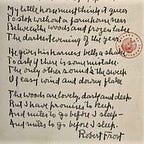 My little horse must think it queer
To stop without a farmhouse near
Between the woods and frozen lake
The darkest evening of the year.
He gives his harness bells a shake
To ask if there is some mistake.
The only other sound's the sweep
Of easy wind and downy flake.
The woods are lovely, dark and deep
But I have promises to keep,
And miles to go before I sleep —
And miles to go before I sleep.
Robert Frost